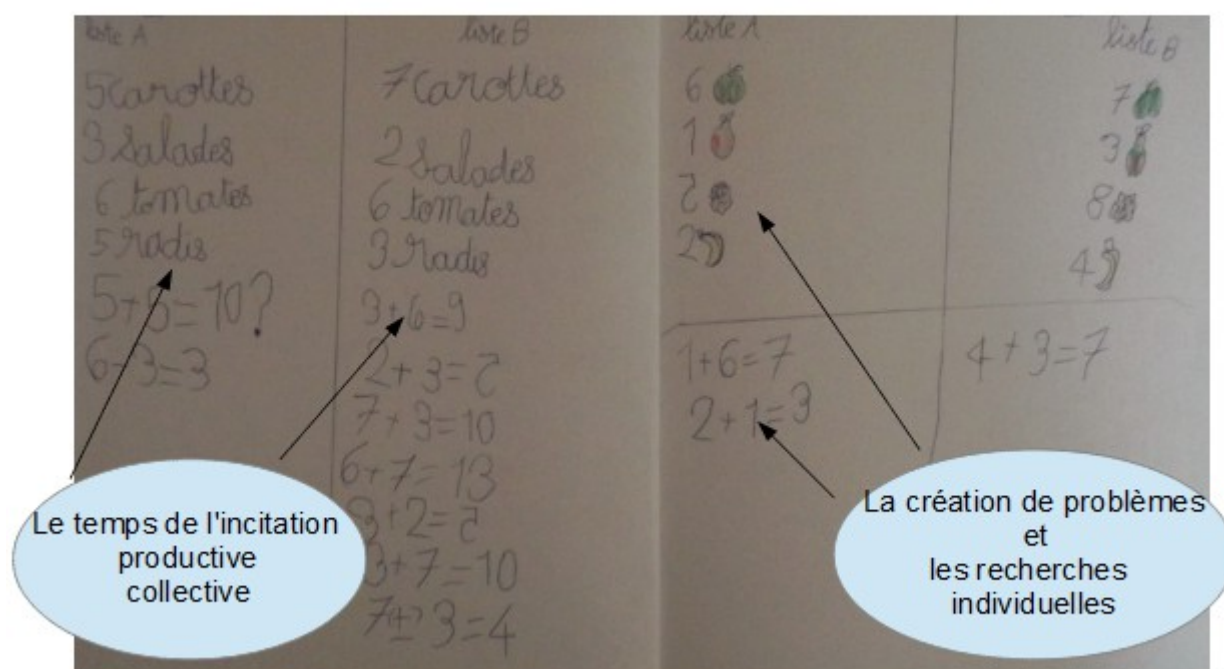 liste A
5 carottes
3 salades
6 tomates
5 radis
5+5=10?
6-3=3
liste B
7 carottes
2 salades
6 tomates
3 radis
3+6=9
2+3=5
7+3=10
6+7=13
3+2=5
3+7=10
7(+)- 3=4
liste A
6
1
5
2
1+6=7
2+1=3
liste B
7
3
8
4
4+3=7
Le temps de l'incitation
productive
collective
La création de problèmes
et
les recherches
individuelles